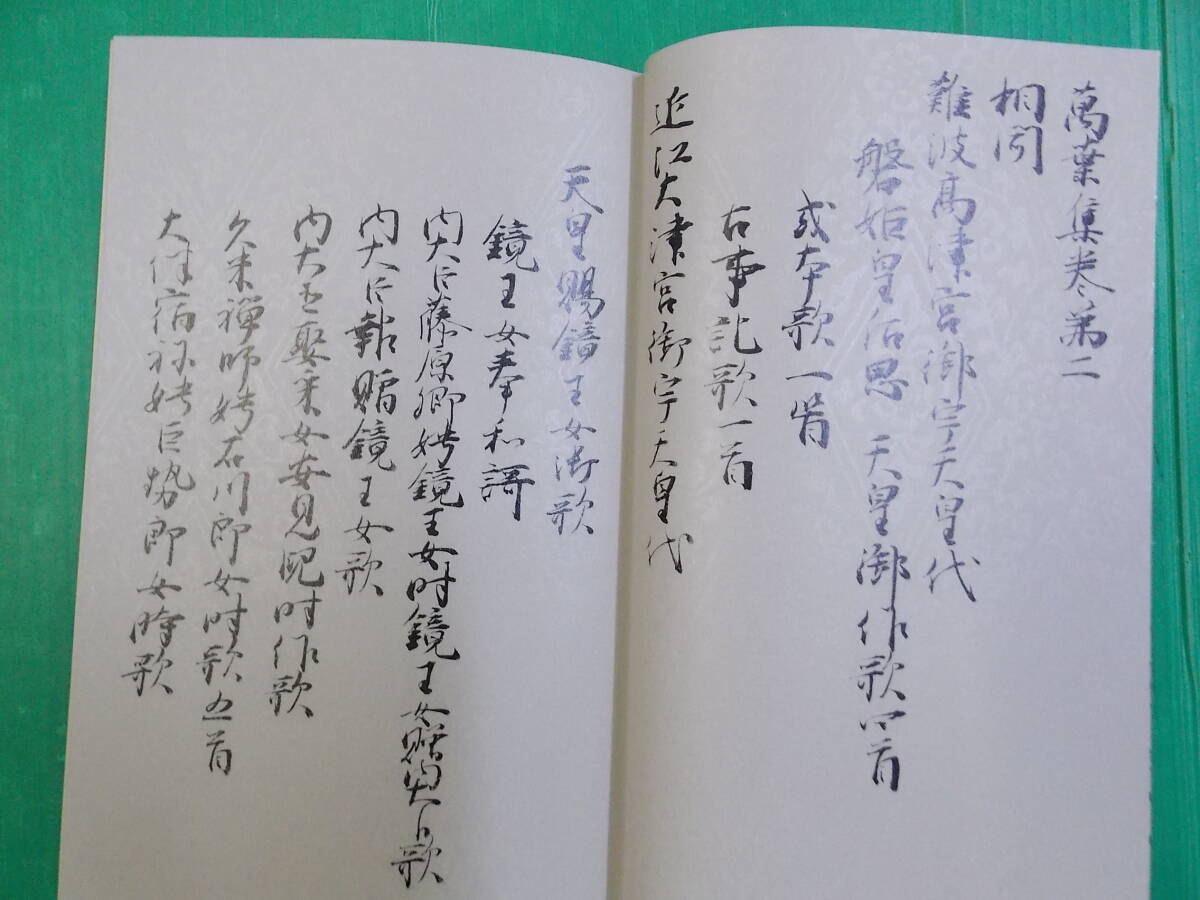 萬葉集巻第二
相聞
難波髙津宮御宇天皇代
磐姫皇后思 天皇御作歌四首
或本歌一首
古事記歌一首
近江大津宮御宇天皇代
天皇賜鏡王女御歌
鏡王女奉和謌
内大臣藤原卿娉鏡王女時鏡王女贈内大臣歌
内大臣報贈鏡王女歌
内大臣娶采女安見児時作歌
久米禅師娉石川郎女時歌五首
大伴宿祢娉巨勢郎女時歌